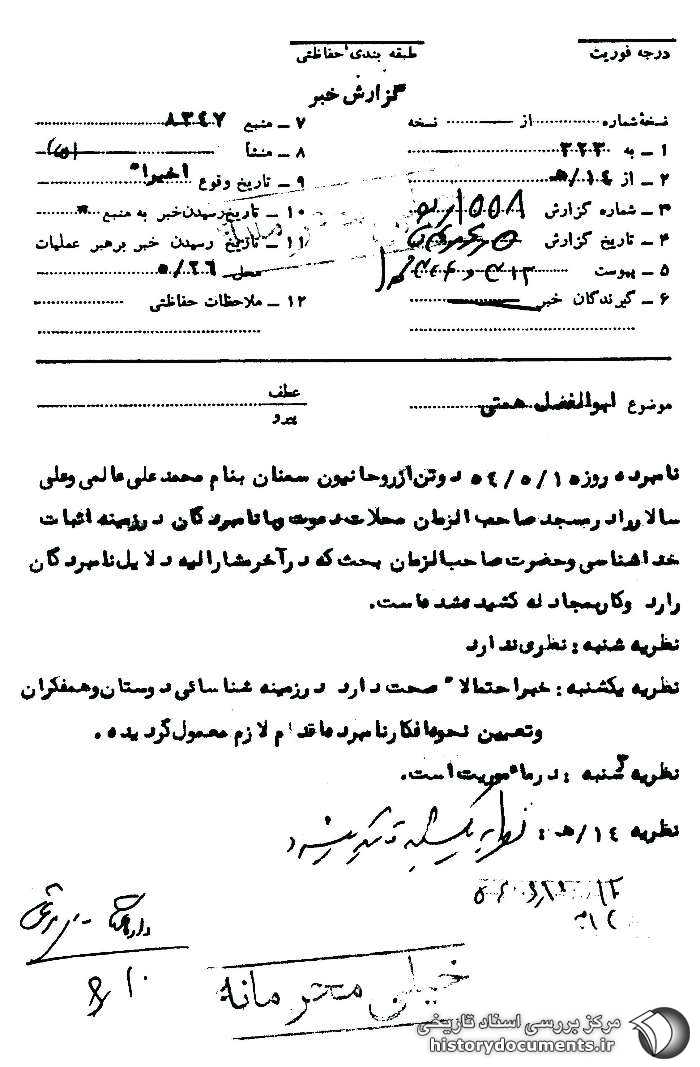 درجه فوریت
طبقه بندی حفاظتی
گزارش خبر
نسخهٔ شماره از نسخه
۱ ـ به ۳۲۳
۲ ـ از ۱۴/هـ
۳ ـ شماره گزارش
۴ ـ تاریخ گزارش
۵ ـ پیوست
۶ ـ گیرندگان خبر
۷ ـ منبع ۸۳۴۷
۸ ـ منشأ
۹ ـ تاریخ وقوع اخیراً
۱۰ ـ تاریخ رسیدن خبر به منبع
۱۱ ـ تاریخ رسیدن خبر برهبر عملیات
محل ۵/۲۶
۱۲ ـ ملاحظات حفاظتی
موضوع ابوالفضل همتی
عطف
پیرو
نامبرده روز ۵۴/۵/۱۵ دوتن از روحانیون سمنان بنام محمد علی عالمی وعلی
سالار را در مسجد صاحب الزمان محلات دعوت وبا نامبردگان در زمینه اثبات
خدا شناسی وحضرت صاحب الزمان بحث که در آخر مشارالیه دلایل نامبردگان
را رد وکار بمجادله کشیده شده است.
نظریه شنبه : نظری ندارد
نظریه یکشنبه : خبر احتمالاً صحت دارد در زمینه شناسائی دوستان وهمفکران
وتعیین نحوه افکار نامبرده اقدام لازم معمول گردیده .
نظریه ۳ شنبه : در مأموریت است.
نظریه ۱۴/هـ : نظریه یکشنبه تائید میشود
خیلی محرمانه
مرکز بررسی اسناد تاریخی
historydocuments.ir